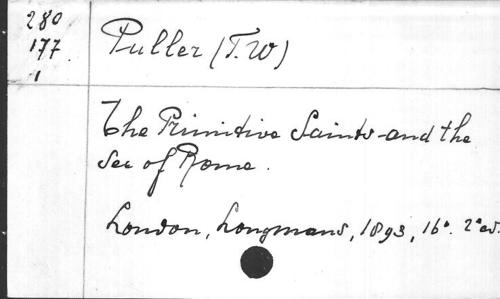 280
177
1
Puller (T.W)
The Primitive Saints and the
See of Rome.
London, Longmans, 1893, 16°. 2ª ed.